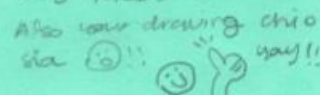 Also your drawing chio
sia !!
yay!!